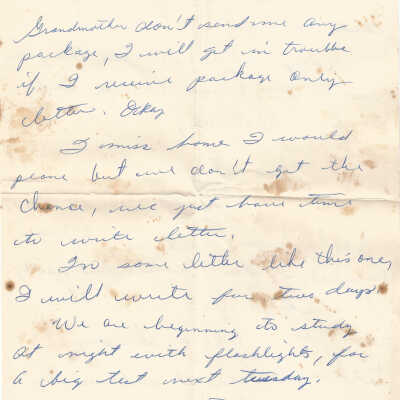 Grandmother don't send me any
package, I will get in trouble
if I receive package only
letter. Okay
I miss home I would
phone but we don't get the
chance, we just have time
to write letter.
In some letter like this one,
I will write for two days
We are beginning to study
at night with flashlights, for
a big test next tuesday.